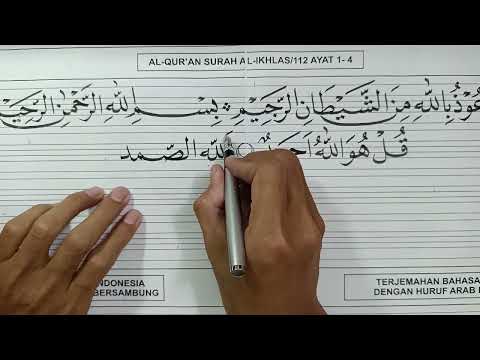 AL-QUR'AN SURAH AL-IKHLAS/112 AYAT 1- 4
عُوْذُ بِاللّٰهِ مِنَ الشَّيْطَانِ الرَّجِيْمِ ۞ بِسْمِ اللّٰهِ الرَّحْمٰنِ الرَّحِيْـ
قُلْ هُوَ اللّٰهُ اَحَدٌ ○ اَللّٰه الصّمد
NDONESIA
BERSAMBUNG
TERJEMAHAN BAHASA
DENGAN HURUF ARAB